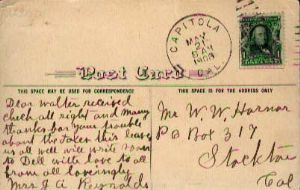 CAPITOLA
MAY
21
8 AM
1908
CAL.
Post Card
THIS SPACE MAY BE USED FOR CORRESPONDENCE
THIS SPACE IS FOR THE ADDRESS ONLY
Dear Walter received
check all right and Many
thanks for your trouble
about the this leaves
us all well will write soon
to Dell with love to all
from all lovingly
Mrs J A Reynolds
Mr. W. W. Harnor
PO Box 317
Stockton
Cal